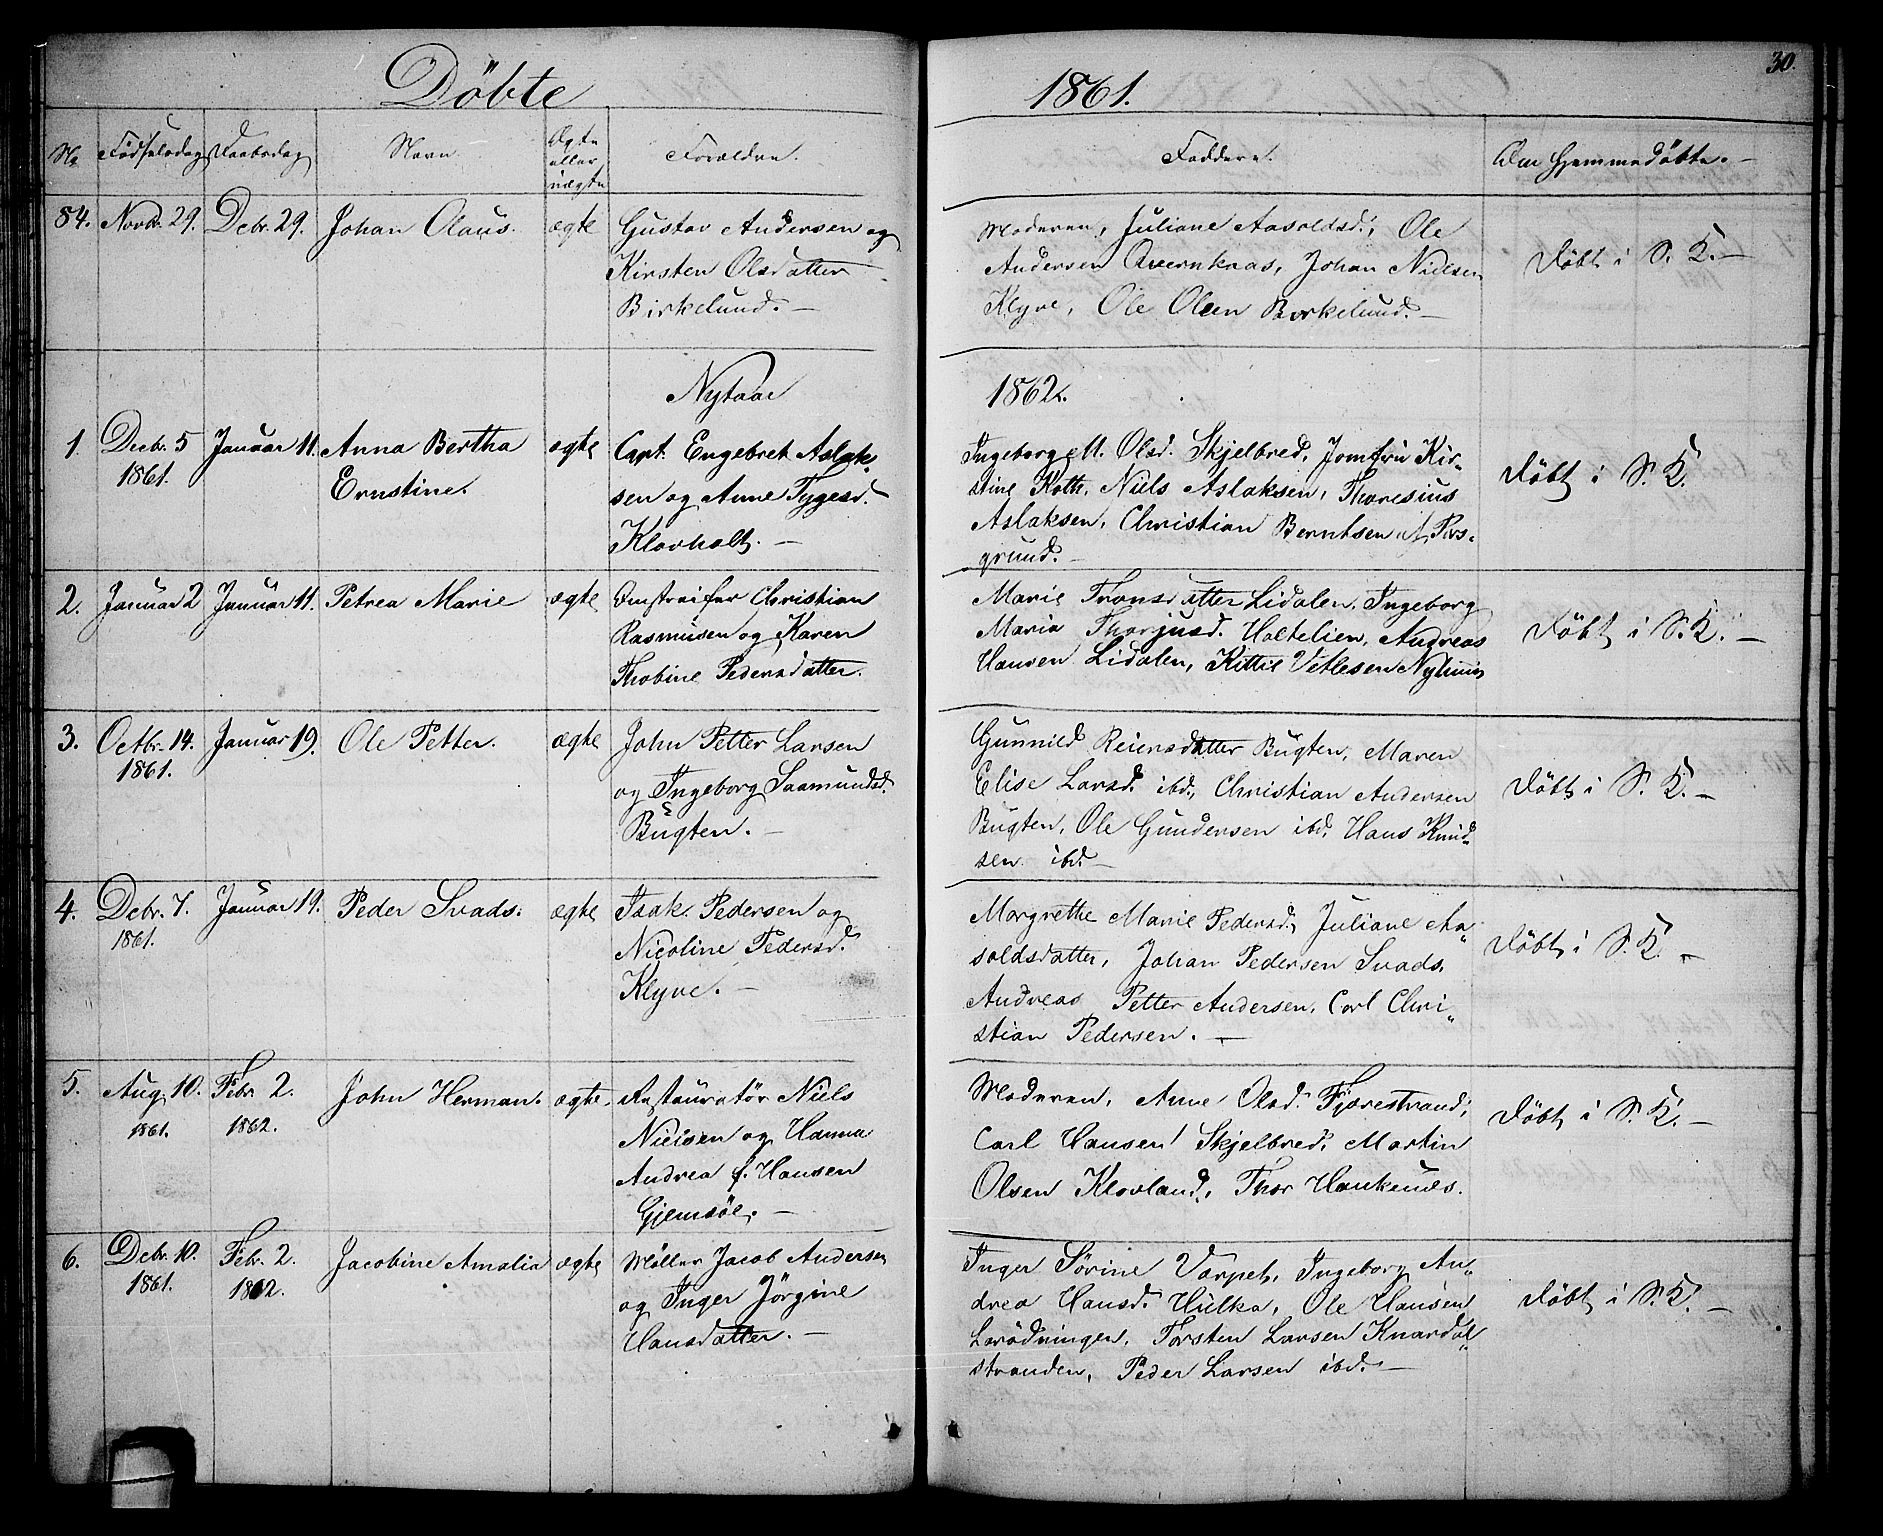 Döbte
1861.
30.
No
Födselsdag
Daabsdag
Navn.
Ægte
eller
uægte
Forældre.
Faddere.
Om hjemmedöbte. —
84.
Novbr. 29.
Debr. 29.
Johan Olaus.
ægte
Gustav Andersen og
Kirsten Olsdatter
Birkelund. —
Moderen, Juliane Aasoldsd., Ole
Andersen Qvernknas, Johan Nielsen
Klyve, Ole Olsen Borkelund. —
Döbt i S. K. —
Nytaar
1862.
1.
Decbr. 5
1861.
Januar 11.
Anna Bertha
Ernstine.
ægte
Capt. Engebret Aslak-
sen og Anne Tygesd.
Klovholt. —
Ingeborg M. Olsd. Skjelbred, Jomfru Kir-
stine Koth, Niels Aslaksen, Thoresius
Aslaksen, Christian Berntsen af Pors-
grund. —
Döbt i S. K.
2.
Januar 2
Januar 11.
Petrea Marie
ægte
Omstreifer Christian
Rasmusen og Karen
Thobine Pedersdatter.
Marie Fransdatter Lidalen, Ingeborg
Maria Thorjusd. Holtelien, Andreas
Hansen Lidalen, Kittil Vetlesen
Döbt i S. K. —
3.
Octbr. 14.
1861.
Januar 19.
Ole Petter.
ægte
John Petter Larsen
og Ingeborg Saamundsd.
Bugten. —
Gunnild Reiersdatter Bugten, Maren
Elise Larsd. ibd., Christian Andersen
Bugten, Ole Gundersen ibd. Hans Knud-
sen ibd. —
Döbt i S. K. —
4.
Debr. 7.
1861.
Januar 19.
Peder Svads.
ægte
Isak Pedersen og
Nicoline Pedersd.
Klyve. —
Margrethe Marie Pedersd., Juliane Aa-
soldsdatter, Johan Pedersen Svads,
Andreas Petter Andersen, Carl Chri-
stian Pedersen. —
Döbt i S. K. —
5.
Aug. 10.
1861.
Febr 2.
1862.
John Herman.
ægte.
Restauratör Niels
Nielsen og Hanna
Andrea f. Hansen
Gjemsöe. —
Moderen, Anne Olsd. Fjærestrand,
Carl Hansen Skjelbred, Martin
Olsen Klovland, Thor Haukenæs.
Döbt i S. K. —
6.
Debr. 10.
1861.
Febr. 2.
1862.
Jacobine Amalia
ægte
Möller Jacob Andersen
og Inger Jörgine
Hansdatter. —
Inger Sörine Varpet, Ingeborg An-
drea Hansd. Hulka, Ole Hansen
Torsten Larsen Knardal-
stranden, Peder Larsen ibd. —
Döbt i S. K. —